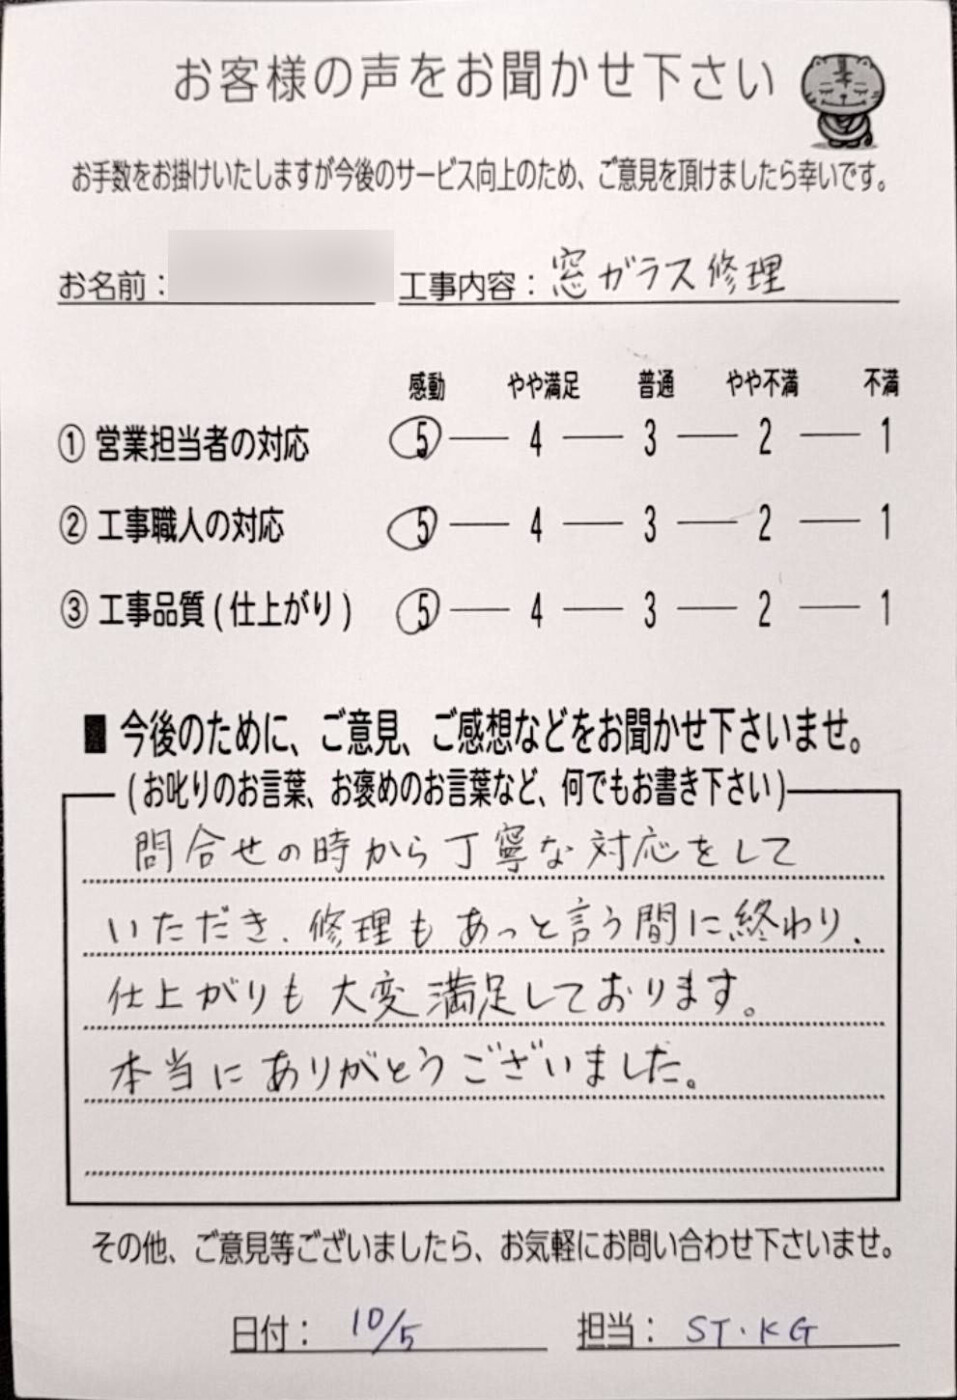 お客様の声をお聞かせ下さい
お手数をお掛けいたしますが今後のサービス向上のため、ご意見を頂けましたら幸いです。
お名前： 工事内容：窓ガラス修理
感動 やや満足 普通 やや不満 不満
① 営業担当者の対応 5 — 4 — 3 — 2 — 1
② 工事職人の対応 5 — 4 — 3 — 2 — 1
③ 工事品質（仕上がり） 5 — 4 — 3 — 2 — 1
■ 今後のために、ご意見、ご感想などをお聞かせ下さいませ。
（お叱りのお言葉、お褒めのお言葉など、何でもお書き下さい）
問合せの時から丁寧な対応をして
いただき、修理もあっと言う間に終わり、
仕上がりも大変満足しております。
本当にありがとうございました。
その他、ご意見等ございましたら、お気軽にお問い合わせ下さいませ。
日付： 10/5 担当： ST・KG